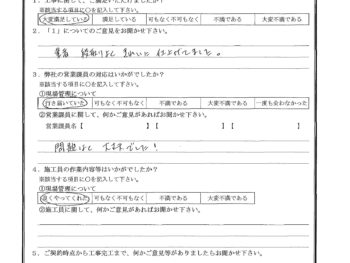 1．工事に関して、ご満足いただけましたか？
※該当する項目に○を記入して下さい。
大変満足している 満足している 可もなく不可もなく 不満である 大変不満である
2．「1」についてのご意見をお聞かせ下さい。
きれいに 仕上げてました。
3．弊社の営業課員の対応はいかがでしたか？
※該当する項目に○を記入して下さい。
①現場管理について
行き届いていた 可もなく不可もなく 不満である 大変不満である 一度も会わなかった
②営業課員に関して、何かご意見があればお聞かせ下さい。
営業課員名【 】【 】【 】
問題なく
4．施工員の作業内容等はいかがでしたか？
※該当する項目に○を記入して下さい。
①現場管理について
良くやってくれた 可もなく不可もなく 不満である 大変不満である
②施工員に関して、何かご意見があればお聞かせ下さい。
5．ご契約時点から工事完工まで、何かご意見等がありましたらお聞かせ下さい。